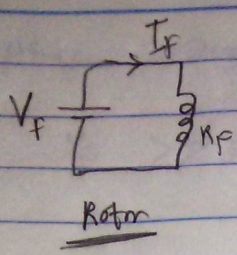 I_f
V_f
R_F
Rotor